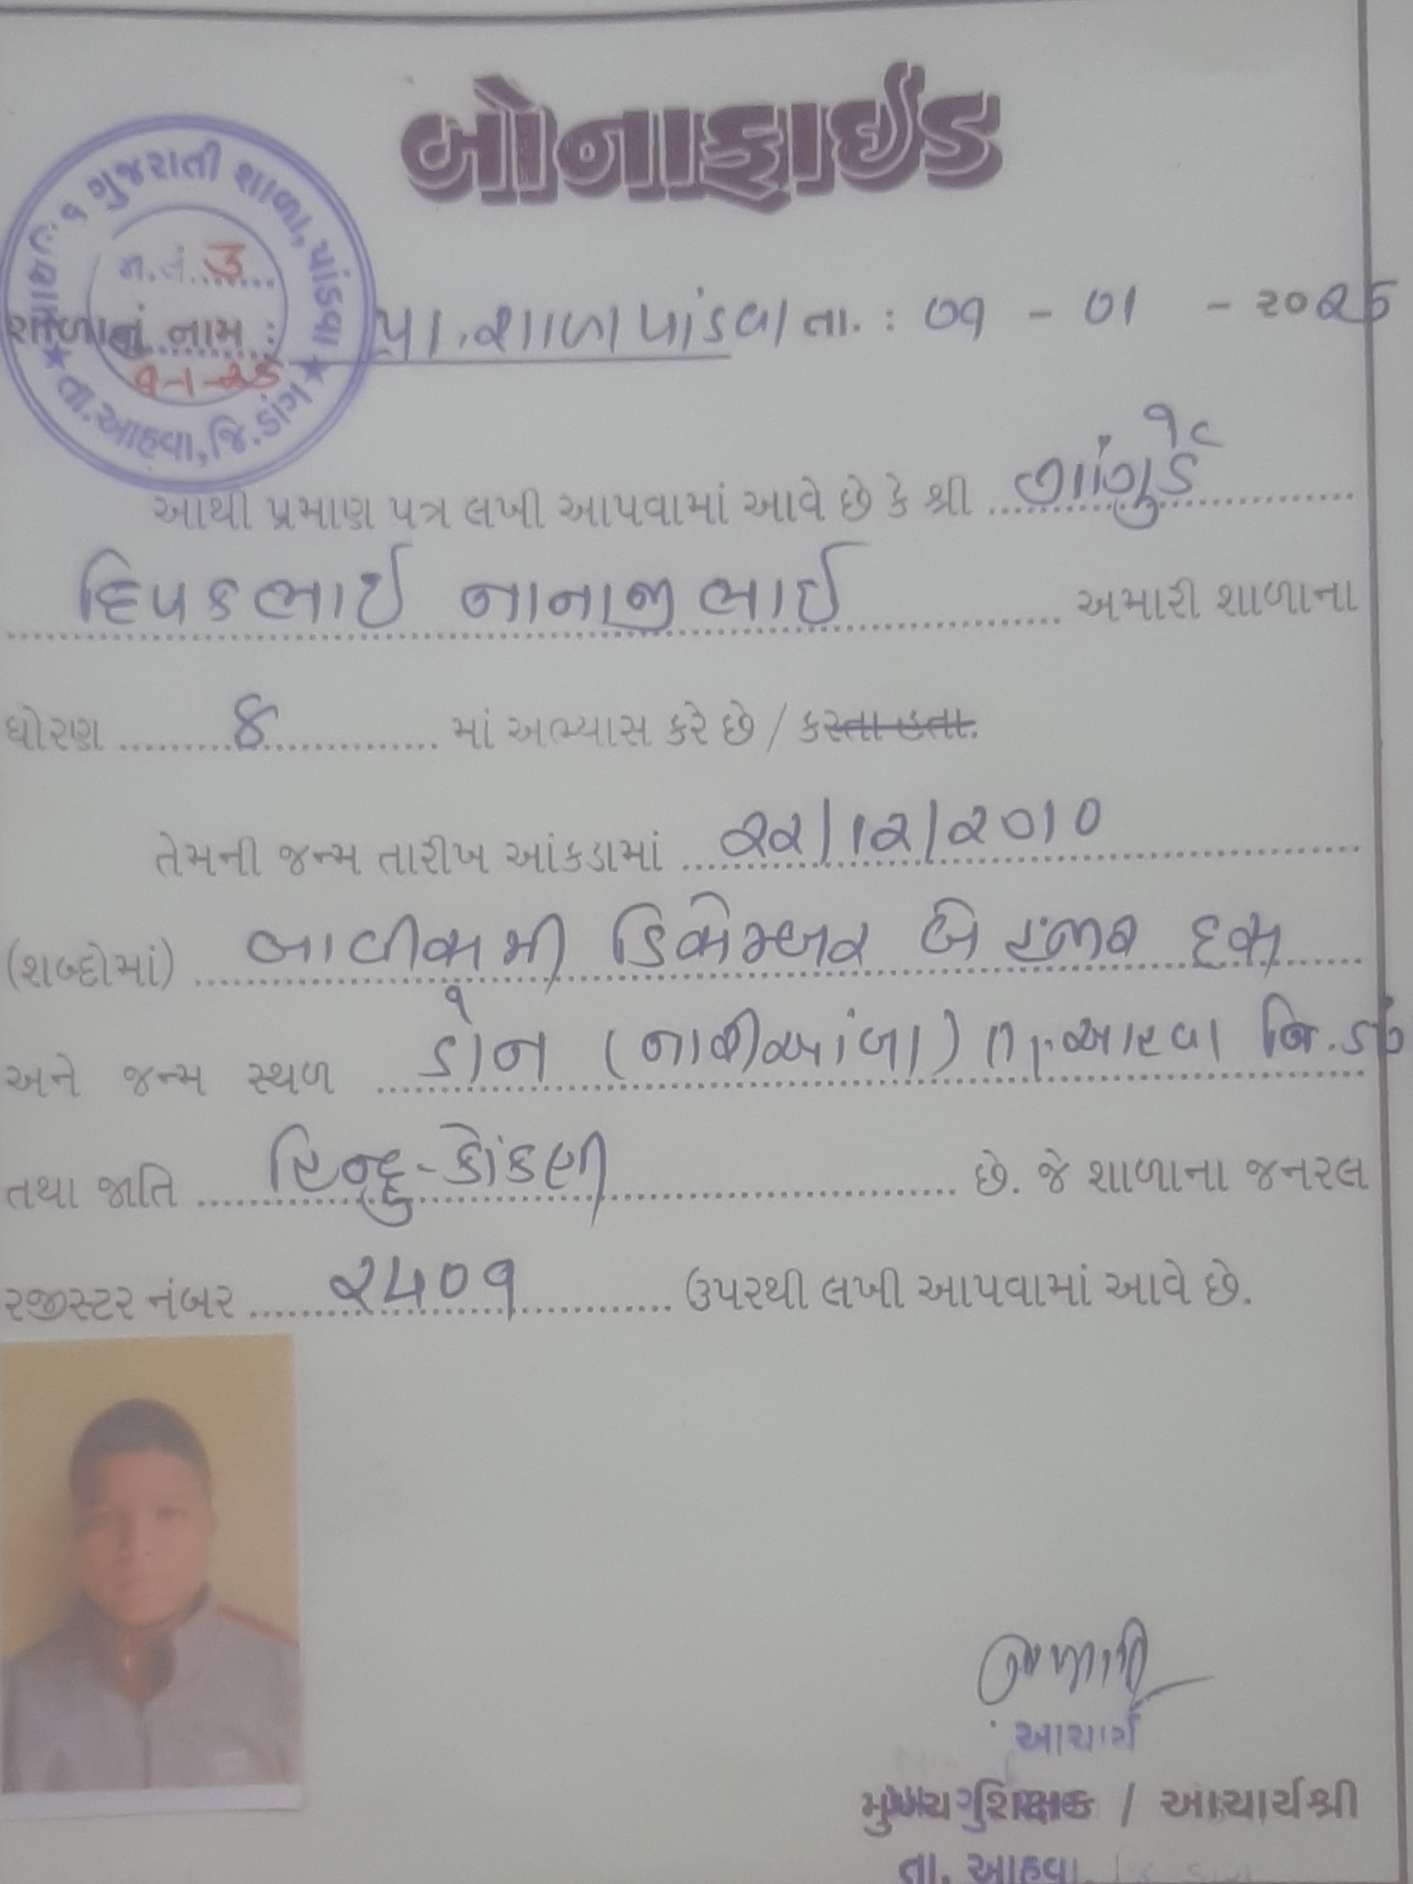 બોનાફાઈડ
ગુજરાતી શાળા, પાંડવા
તા.આહવા, જિ.ડાંગ
જા.નં. 3
૧-૧-૨૬
શાળાનું નામ : પ્રા. શાળા પાંડવા તા. : ૦૧ - ૦૧ - ૨૦૨૬
આથી પ્રમાણ પત્ર લખી આપવામાં આવે છે કે શ્રી ગાંગુર્ડે
દિપકભાઈ નાનાજીભાઈ અમારી શાળાના
ધોરણ ૪ માં અભ્યાસ કરે છે / કરતા હતા.
તેમની જન્મ તારીખ આંકડામાં ૨૨/૧૨/૨૦૧૦
(શબ્દોમાં) બાવીસમી ડિસેમ્બર બે હજાર દસ
અને જન્મ સ્થળ ડોન તા. આહવા જિ. ડાંગ
તથા જાતિ હિન્દુ-કોંકણી છે. જે શાળાના જનરલ
રજીસ્ટર નંબર ૨૫૦૧ ઉપરથી લખી આપવામાં આવે છે.
આચાર્ય
મુખ્ય શિક્ષક / આચાર્યશ્રી
તા. આહવા